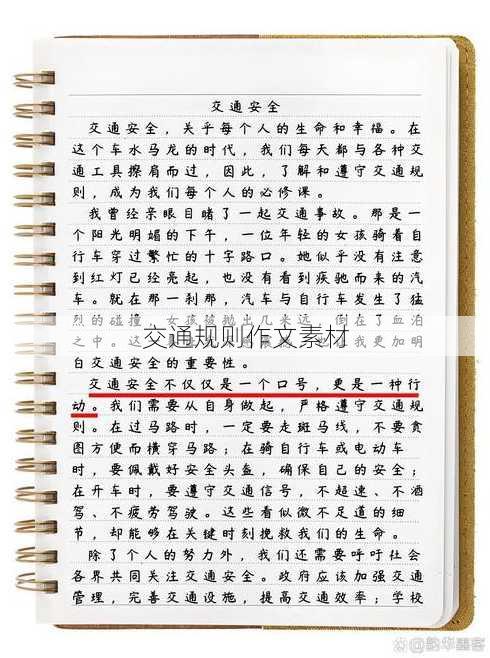 交通安全
交通安全，关乎每个人的生命和幸福。在
这个车水马龙的时代，我们每天都与各种交
通工具擦肩而过，因此，了解和遵守交通规
则，成为我们每个人的必修课。
我曾经亲眼目睹了一起交通事故。那是一
个阳光明媚的下午，一位年轻的女孩骑着自
行车穿过繁忙的十字路口。她似乎没有注意
到红灯已经亮起，也没有看到疾驰而来的汽
车。就在那一刹那，汽车与自行车发生了猛
烈的碰撞，女孩被抛出几米远，倒在了血泊
之中。这
交通规则作文素材
我更加明
白交通安全的重要性。
交通安全不仅仅是一个口号，更是一种行
动。我们需要从自身做起，严格遵守交通规
则。在过马路时，一定要走斑马线，不要贪
图方便而横穿马路；在骑自行车或电动车
时，要佩戴好安全头盔，确保自己的安全；
在开车时，要遵守交通信号，不超速、不酒
驾、不疲劳驾驶。这些看似微不足道的细
节，却能够在关键时刻挽救我们的生命。
除了个人的努力外，我们还需要呼吁社会
各界共同关注交通安全。政府应该加强交通
管理，完善交通设施，提高交通效率；学校
@韵华墨客